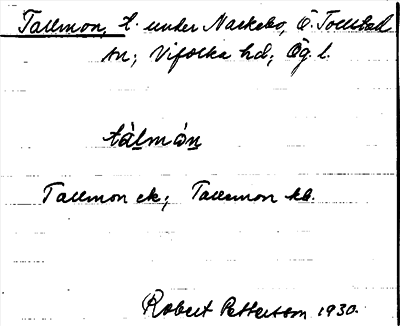 Tallmon, t. under Narkebo, Ö. Tollstad
sn; Vifolka hd; Ög. l.
tàlmón
Tallmon ek; Tallemon kb.
Robert Pettersson 1930.